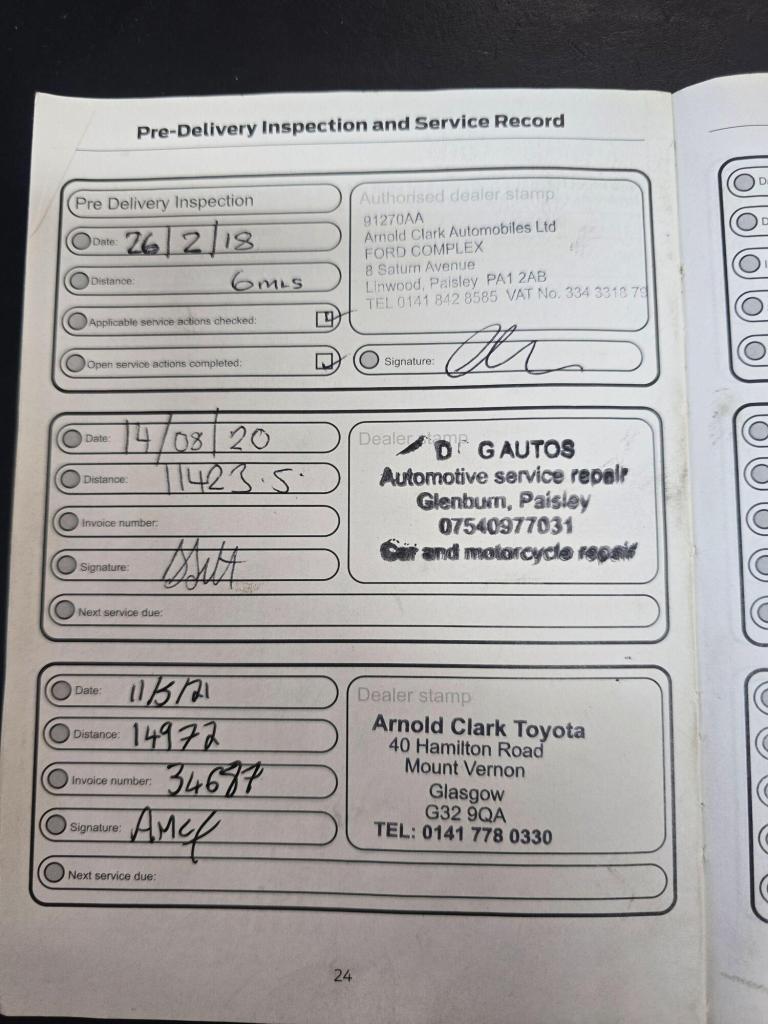 Pre-Delivery Inspection and Service Record
Pre Delivery Inspection
Date: 26/2/18
Distance: 6 MLS
Applicable service actions checked:
Open service actions completed:
Authorised dealer stamp
91270AA
Arnold Clark Automobiles Ltd
FORD COMPLEX
8 Saturn Avenue
Linwood, Paisley PA1 2AB
TEL 0141 842 8585 VAT No. 334 3318 79
Signature:
Date: 14/08/20
Distance: 11423.5
Invoice number:
Signature:
Next service due:
Dealer stamp
D G AUTOS
Automotive service repair
Glenburn, Paisley
07540977031
Car and motorcycle repair
Date: 11/5/21
Distance: 14972
Invoice number: 34687
Signature:
Next service due:
Dealer stamp
Arnold Clark Toyota
40 Hamilton Road
Mount Vernon
Glasgow
G32 9QA
TEL: 0141 778 0330
24